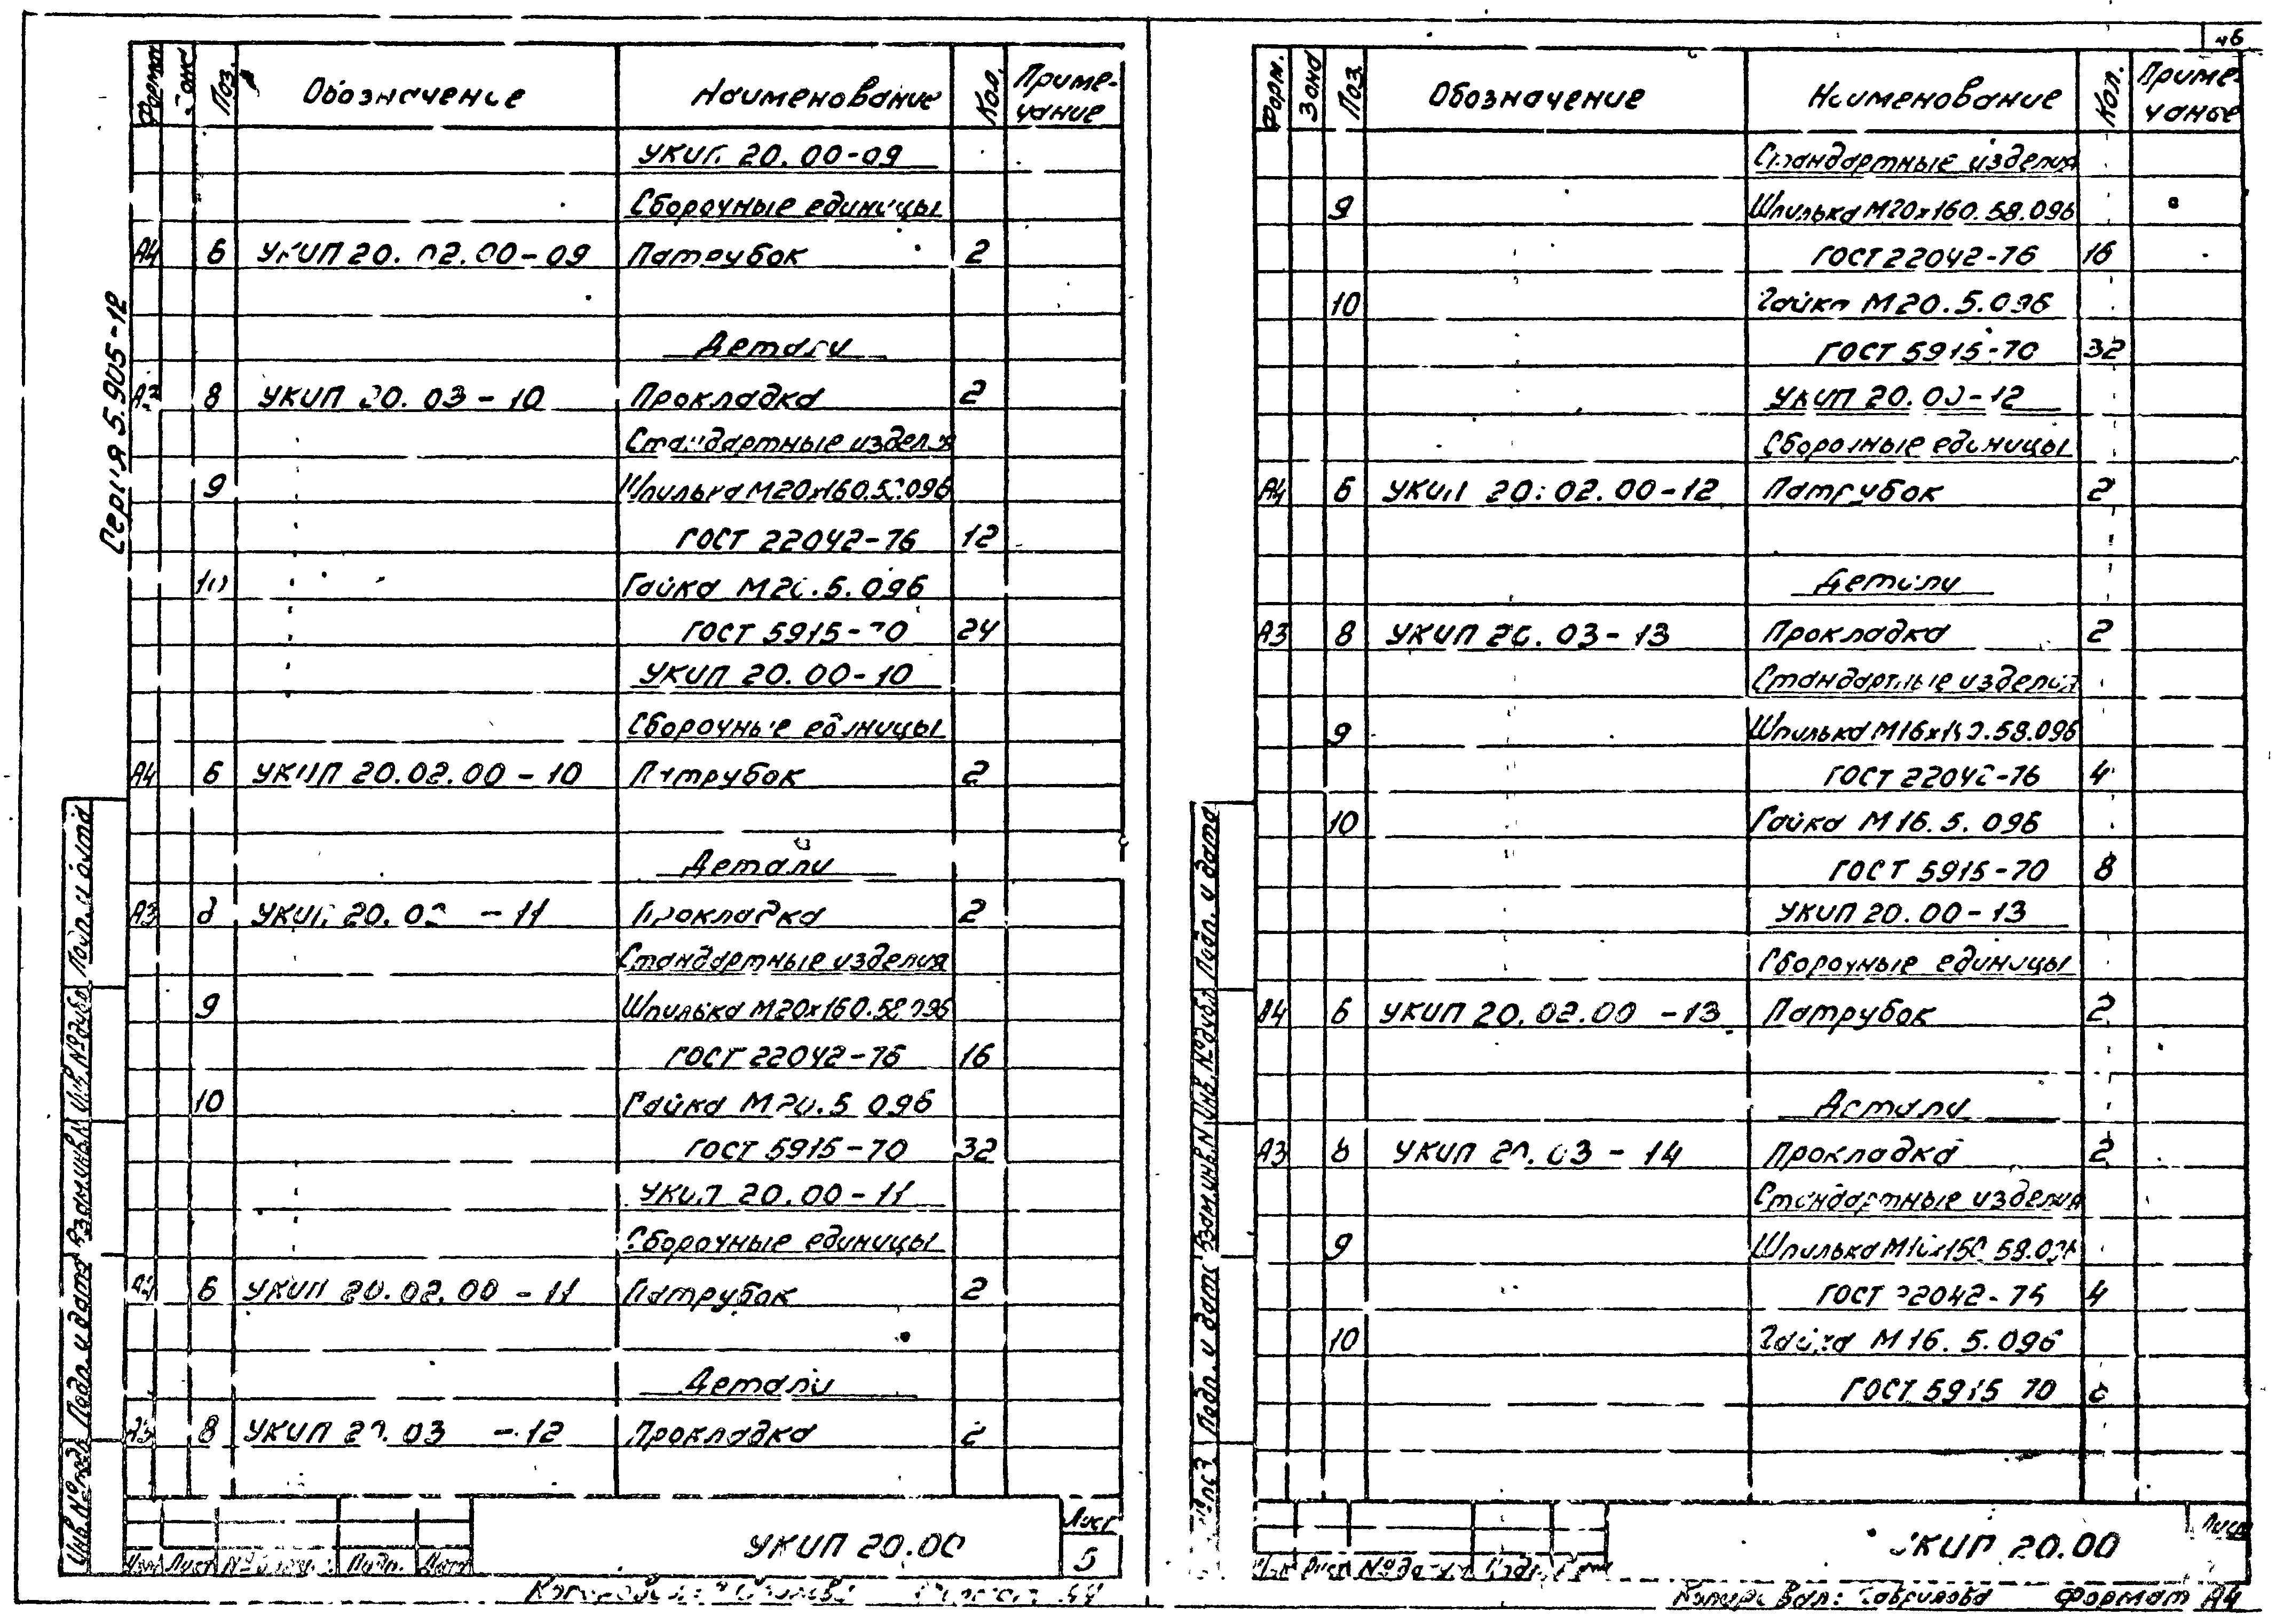 46
Серия 5.905-12
Форм. Зона Поз. Обозначение Наименование Кол. Приме-
чание
УКИП 20.00-09
Сборочные единицы
А4 6 УКИП 20.02.00-09 Патрубок 2
Детали
А3 8 УКИП 20.03-10 Прокладка 2
Стандартные изделия
9 Шпилька М20х160.58.096
ГОСТ 22042-76 12
10 Гайка М20.5.096
ГОСТ 5915-70 24
УКИП 20.00-10
Сборочные единицы
А4 6 УКИП 20.02.00-10 Патрубок 2
Детали
А3 8 УКИП 20.03-11 Прокладка 2
Стандартные изделия
9 Шпилька М20х160.58.096
ГОСТ 22042-76 16
10 Гайка М20.5.096
ГОСТ 5915-70 32
УКИП 20.00-11
Сборочные единицы
А4 6 УКИП 20.02.00-11 Патрубок 2
Детали
А3 8 УКИП 20.03-12 Прокладка 2
Инв. № подл. Подп. и дата Взам. инв. № Инв. № дубл. Подп. и дата
УКИП 20.00
Лист
5
Изм Лист № докум. Подп. Дата
Форм. Зона Поз. Обозначение Наименование Кол. Приме-
чание
Стандартные изделия
9 Шпилька М20х160.58.096
ГОСТ 22042-76 16
10 Гайка М20.5.096
ГОСТ 5915-70 32
УКИП 20.00-12
Сборочные единицы
А4 6 УКИП 20.02.00-12 Патрубок 2
Детали
А3 8 УКИП 20.03-13 Прокладка 2
Стандартные изделия
9 Шпилька М16х .58.096
ГОСТ 22042-76 4
10 Гайка М16.5.096
ГОСТ 5915-70 8
УКИП 20.00-13
Сборочные единицы
А4 6 УКИП 20.02.00-13 Патрубок 2
Детали
А3 8 УКИП 20.03-14 Прокладка 2
Стандартные изделия
9 Шпилька М16х150.58.096
ГОСТ 22042-76 4
10 Гайка М16.5.096
ГОСТ 5915-70
Подп. и дата Взам. инв. № Инв. № дубл. Подп. и дата
УКИП 20.00
Лист
Изм Лист № докум. Подп. Дата
Копировал: Гаврилова Формат А4